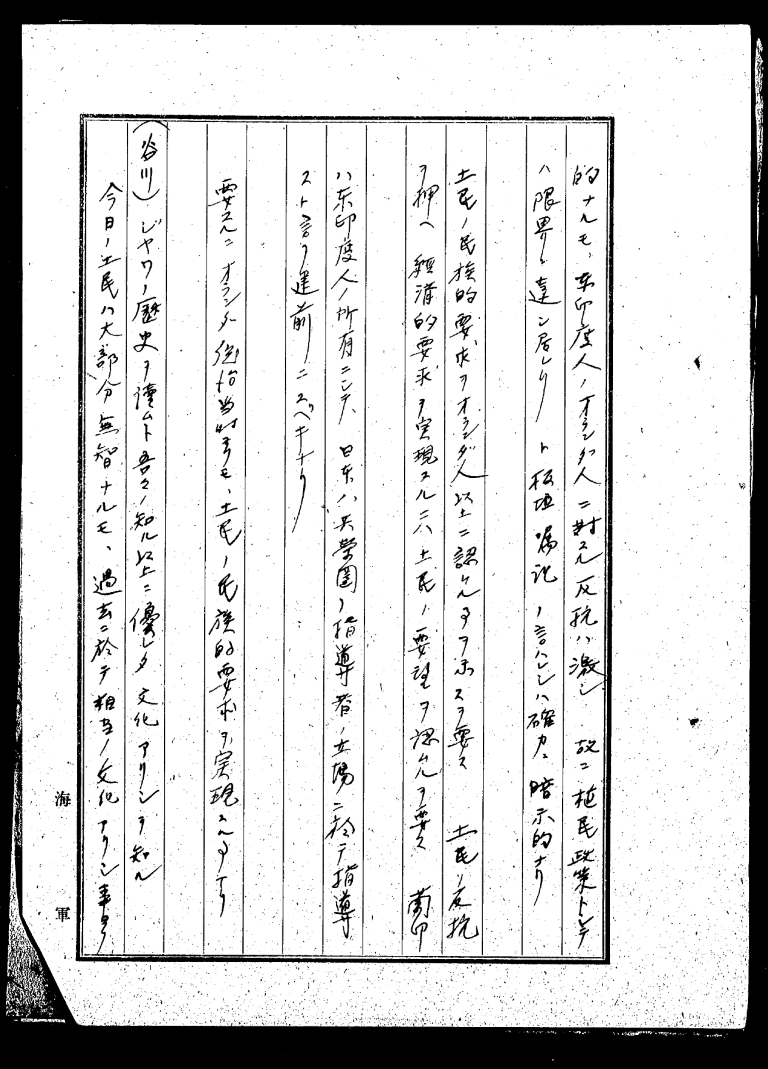 的ナルモ、東印度人ノオランダ人ニ対スル反抗ハ激シ 故ニ植民政策トシテ
ハ限界ニ達シ居レリ ト板垣嘱託ノ言ハレシハ確カニ暗示的ナリ
土民ノ民族的要求ヲオランダ人以上ニ認ムル事ヲ示スヲ要ス 土民ノ反抗
ヲ押ヘ経済的要求ヲ実現スルニハ土民ノ要望ヲ認ムルヲ要ス 蘭印
ハ東印度人ノ所有ニシテ、日本ハ共栄圏ノ指導者ノ立場ニ於テ指導
スト言フ建前ニスベキナリ
要スルニオランダ統治当時ヨリモ、土民ノ民族的要求ヲ実現スル事ナリ
(谷川)ジヤワノ歴史ヲ読ムト吾々ノ知ル以上ニ優レタ文化アリシヲ知ル
今日ノ土民ハ大部分無智ナルモ、過去ニ於テ相当ノ文化アリシ事ヲ
海軍